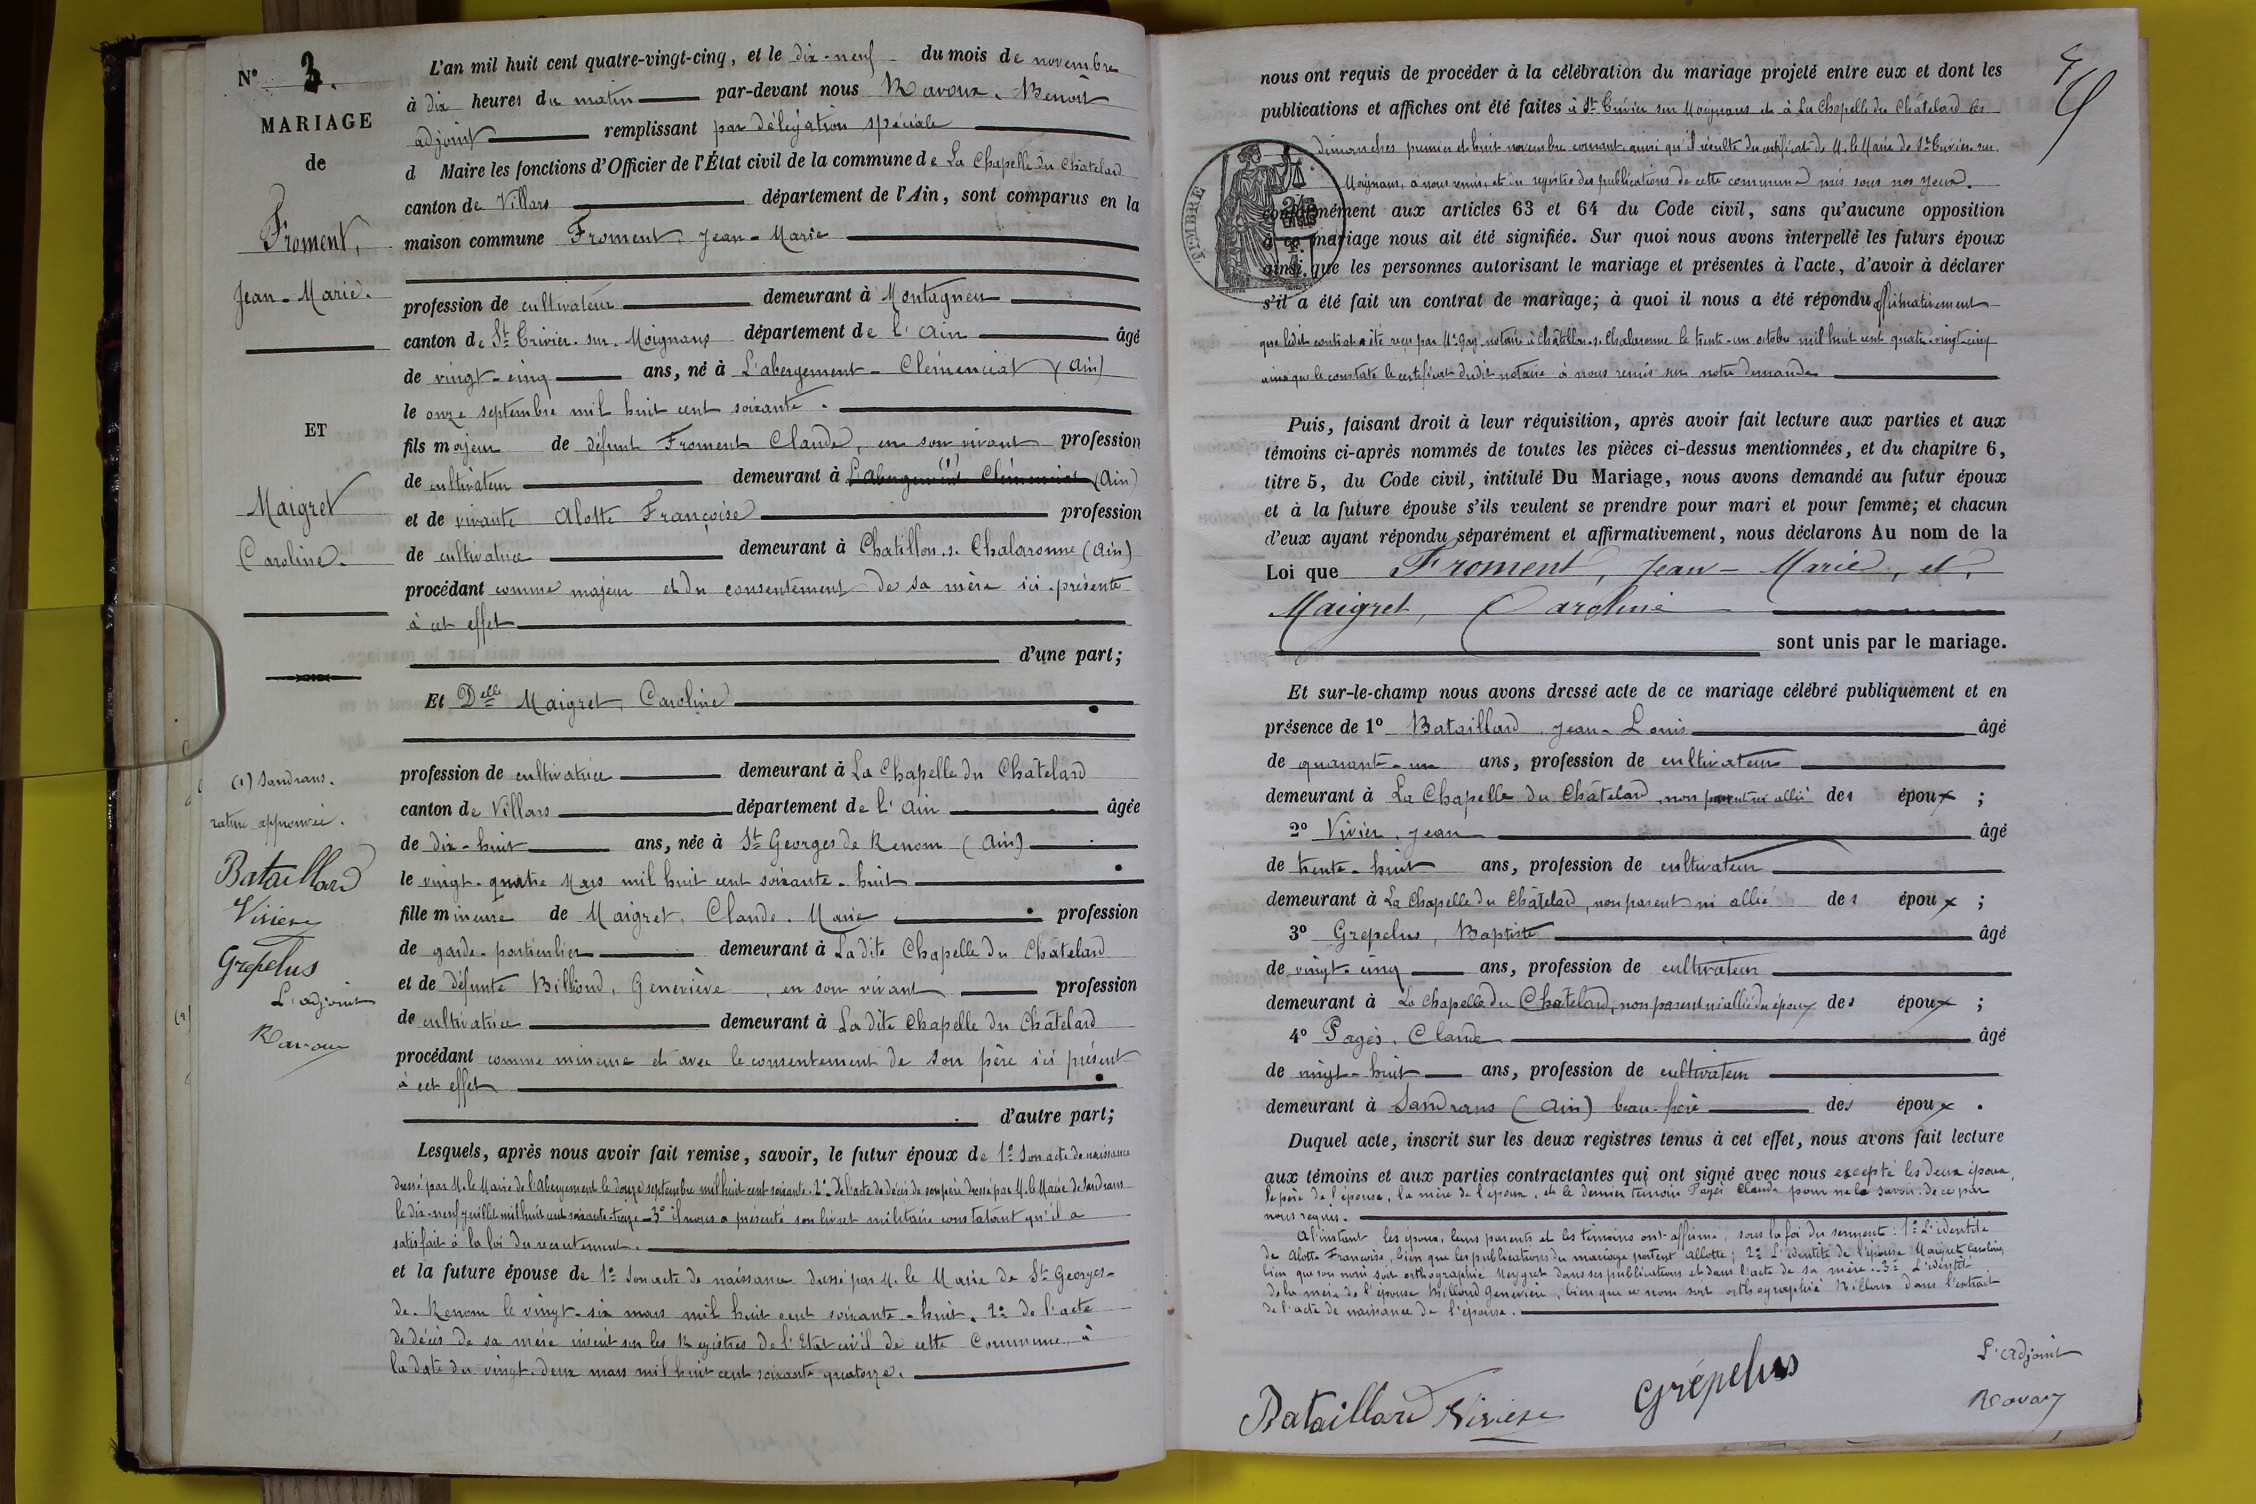 N° 3.
MARIAGE
de
Froment,
Jean-Marie.
ET
Maigret
Caroline.
L'an mil huit cent quatre-vingt-cinq, et le dix-neuf du mois de novembre
à dix heures du matin par-devant nous Ravoux, Benoit
adjoint remplissant par délégation spéciale
d Maire les fonctions d'Officier de l'État civil de la commune de La Chapelle du Châtelard
canton de Villars département de l'Ain, sont comparus en la
maison commune Froment, Jean-Marie
profession de cultivateur demeurant à Montagneu
canton de St Trivier-sur-Moignans département de l'Ain âgé
de vingt-cinq ans, né à L'abergement-Clémenciat (Ain)
le onze septembre mil huit cent soixante.
fils majeur de défunt Froment Claude, en son vivant profession
de cultivateur demeurant à L'abergement (1) Clémenciat (Ain)
et de vivante Alotte Françoise profession
de cultivatrice demeurant à Chatillon-s-Chalaronne (Ain)
procédant comme majeur et du consentement de sa mère ici-présente
à cet effet
d'une part;
Et Delle Maigret, Caroline
profession de cultivatrice demeurant à La Chapelle du Chatelard
canton de Villars département de l'Ain âgée
de dix-huit ans, née à St Georges de Renom (Ain)
le vingt-quatre Mars mil huit cent soixante-huit
fille mineure de Maigret, Claude-Marie profession
de garde-particulier demeurant à La dite Chapelle du Châtelard
et de défunte Billiond, Geneviève, en son vivant profession
de cultivatrice demeurant à La dite Chapelle du Châtelard
procédant comme mineure et avec le consentement de son père ici présent
à cet effet
d'autre part;
Lesquels, après nous avoir fait remise, savoir, le futur époux de 1° Son acte de naissance
dressé par M. le Maire de l'Abergement le douze septembre mil huit cent soixante. 2° De l'acte de décès de son père dressé par M. le Maire de Sandrans
le dix-neuf juillet mil huit cent soixante-treize. 3° il nous a présenté son livret militaire constatant qu'il a
satisfait à la loi du recrutement.
et la future épouse de 1° Son acte de naissance dressé par M. le Maire de St Georges-
de-Renom le vingt-six mars mil huit cent soixante-huit. 2° de l'acte
de décès de sa mère inscrit sur les Registres de l'Etat civil de cette Commune, à
la date du vingt-deux mars mil huit cent soixante quatorze.
(1) Sandrans.
rature approuvée.
Bataillard
Vivier
Grépelus
L'adjoint
Ravoux
nous ont requis de procéder à la célébration du mariage projeté entre eux et dont les
publications et affiches ont été faites à St Trivier sur Moignans et à La Chapelle du Châtelard les
dimanches premier et huit novembre courant, ainsi qu'il résulte du certificat de M. le Maire de St Trivier sur
Moignans, à nous remis, et du registre des publications de cette commune mis sous nos yeux.
TIMBRE
conformément aux articles 63 et 64 du Code civil, sans qu'aucune opposition
à ce mariage nous ait été signifiée. Sur quoi nous avons interpellé les futurs époux
ainsi que les personnes autorisant le mariage et présentes à l'acte, d'avoir à déclarer
s'il a été fait un contrat de mariage; à quoi il nous a été répondu affirmativement
que ledit contrat a été reçu par Me Gay, notaire à Châtillon-s-Chalaronne le trente-un octobre mil huit cent quatre-vingt-cinq
ainsi que le constate le certificat dudit notaire à nous remis sur notre demande
Puis, faisant droit à leur réquisition, après avoir fait lecture aux parties et aux
témoins ci-après nommés de toutes les pièces ci-dessus mentionnées, et du chapitre 6,
titre 5, du Code civil, intitulé Du Mariage, nous avons demandé au futur époux
et à la future épouse s'ils veulent se prendre pour mari et pour femme; et chacun
d'eux ayant répondu séparément et affirmativement, nous déclarons Au nom de la
Loi que Froment, Jean-Marie, et,
Maigret, Caroline
sont unis par le mariage.
Et sur-le-champ nous avons dressé acte de ce mariage célébré publiquement et en
présence de 1° Bataillard Jean-Louis âgé
de quarante-un ans, profession de cultivateur
demeurant à La Chapelle du Châtelard, non parent ni allié des époux ;
2° Vivier, Jean âgé
de trente-huit ans, profession de cultivateur
demeurant à La Chapelle du Châtelard, non parent ni allié des époux ;
3° Grepelus, Baptiste âgé
de vingt-cinq ans, profession de cultivateur
demeurant à La Chapelle du Chatelard, non parent ni allié du époux des époux ;
4° Pagès, Claude âgé
de vingt-huit ans, profession de cultivateur
demeurant à Sandrans (Ain) beau-frère des époux.
Duquel acte, inscrit sur les deux registres tenus à cet effet, nous avons fait lecture
aux témoins et aux parties contractantes qui ont signé avec nous excepté les deux époux,
le père de l'épouse, la mère de l'époux, et le dernier témoin Pagès Claude pour ne le savoir, de ce par
nous requis.
A l'instant les époux, leurs parents et les témoins ont affirmé, sous la foi du serment: 1° L'identité
de Alotte Françoise, bien que les publications du mariage portent Allotte; 2° L'identité de l'épouse Maigret Caroline,
bien que son nom soit orthographié Meygret dans ses publications et dans l'acte de sa mère. 3° L'identité
de la mère de l'épouse Billiond Geneviève, bien que ce nom soit orthographié Billoux dans l'extrait
de l'acte de naissance de l'épouse.
Bataillard Vivier
Grépelus
L'adjoint
Ravoux